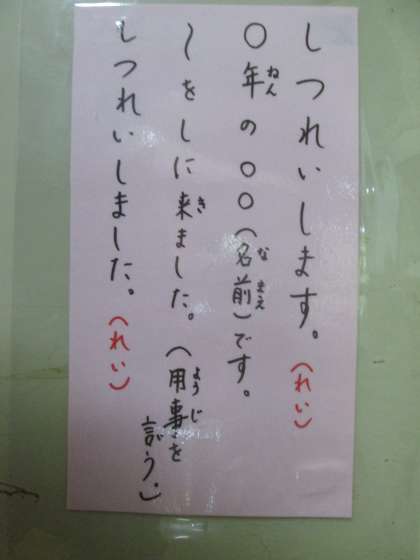 しつれいします。(れい)
〇年の〇〇(名前)です。
ねん
なまえ
〜をしに来ました。(用事を
き
ようじ
言う。)
しつれいしました。(れい)